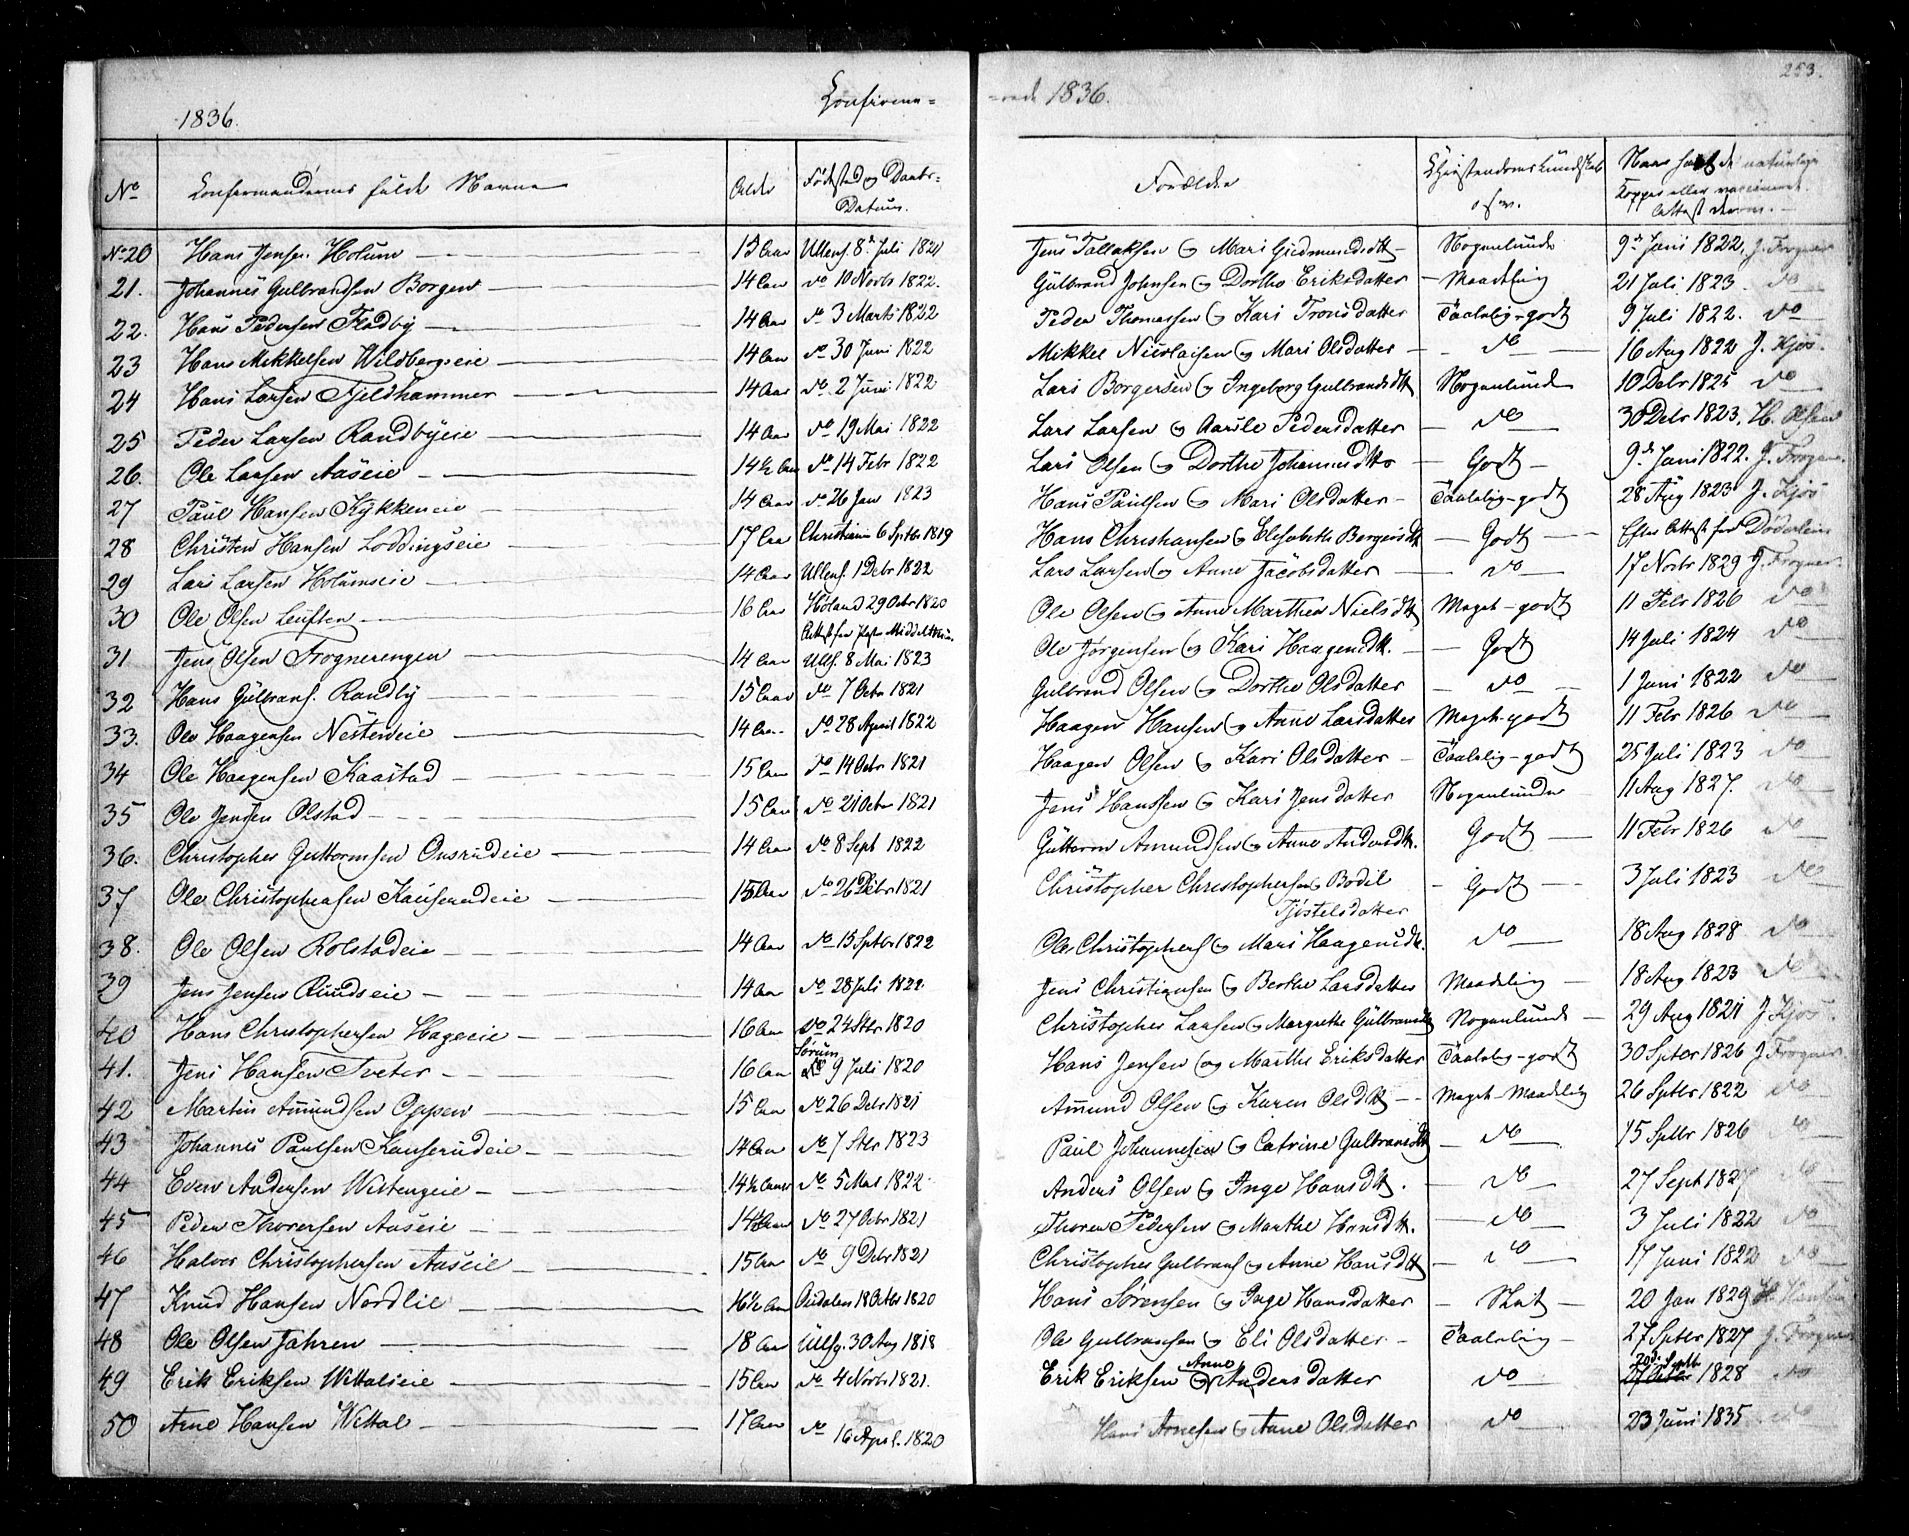 253.
Confirme= =rede 1836.
1836.
No Confirmandernes fulde Navne Alder Fødested og Daabs-Datum. Forældre Christendomskundskab osv. Naar havt de naturlige Kopper eller vaccineret. Attest derom.
No 20 Hans Jensen Holum 15 Aar Ullens. 8de Juli 1821 Jens Tollaksen og Mari Gudmundsdtt Nogenlunde 9de Juni 1822. J. Frogner
21. Johannes Gulbrandsen Borgen 14 Aar do 10 Novbr 1822. Gulbrand Johnsen og Dorthe Eriksdatter Maadelig 21 Juli 1823. do
22. Hans Pedersen Fladby 14 Aar do 3 Marts 1822 Peder Thomassen og Kari Tronsdatter Taalelig-godt 9 Juli 1822. do
23 Hans Mikkelsen Wildbergeie 14 Aar do 30 Juni 1822 Mikkel Nicolaisen og Mari Olsdatter do 16 Aug 1822 J. Kjos.
24 Hans Larsen Fjeldhammer 14 Aar do 2 Juni 1822 Lars Borgersen og Ingeborg Gulbrandsdtt Nogenlunde 10 Debr 1825 do
25 Peder Larsen Randbyeie 14 Aar do 19 Mai 1822 Lars Larsen og Aasile Pedersdatter do 30 Debr 1823. H. Olsen
26. Ole Larsen Aaseie 14½ Aar do 14 Febr 1822 Lars Olsen og Dorthe Johannesdtt Godt 9de Juni 1822. J. Frogner.
27 Paul Hansen Kykkeneie 14 Aar do 26 Jan 1823 Hans Paulsen og Mari Olsdatter Taalelig-godt 28 Aug 1823 J. Kjos
28 Christen Hansen Loddingseie 17 Aar Christiania 6 Septbr 1819 Hans Christiansen og Elisabeth Borgersdtt Godt Efter Attest fra Døderlein
29 Lars Larsen Holumseie 14 Aar Ullens. 1 Debr 1822 Lars Larsen og Anne Jacobsdatter do 17 Novbr 1829 J. Frogner.
30 Ole Olsen Leuften 16 Aar Høland 29 Octr 1820 Ole Olsen og Anne Marthea Nielsdtt Meget-godt 11 Febr 1826 do
31 Jens Olsen Frognerengen 14 Aar Ulls. 8 Mai 1823 Ole Jørgensen og Kari Haagensdtt. Godt 14 Juli 1824 do
32 Hans Gulbrans. Randby 15 Aar do 7 Octr 1821 Gulbrand Olsen og Dorthe Olsdatter do 1 Juni 1822 do
33. Ole Haagensen Nesteneie 14 Aar do 28 April 1822 Haagen Hansen og Anne Larsdatter Meget-godt 11 Febr 1826 do
34 Ole Haagensen Kaastad 15 Aar do 14 Octr 1821 Haagen Olsen og Kari Olsdatter Taalelig-godt 25 Juli 1823 do
35 Ole Jensen Olstad 15 Aar do 21 Octbr 1821 Jens Hansen og Kari Jensdatter Nogenlunde 11 Aug 1827. do
36. Christopher Guttormsen Onsrudeie 14 Aar do 8 Sept 1822 Guttorm Amundsen og Anne Andersdtt. Godt 11 Febr 1826 do
37 Ole Christophersen Kauserudeie 15 Aar do 26 Debr 1821 Christopher Christophersen og Bodil Tjøstelsdatter Godt 3 Juli 1823 do
38. Ole Olsen Rolstadeie 14 Aar do 15 Septbr 1822 Ole Christophers og Mari Haagensdtt. do 18 Aug 1828 do
39 Jens Jensen Rundseie 14 Aar do 28 Juli 1822 Jens Christiansen og Berthe Larsdatter Maadelig 18 Aug 1823 do
40 Hans Christophersen Hageeie 16 Aar do 24 Stbr 1820 Christopher Larsen og Margrethe Gulbransdtt Nogenlunde 29 Aug 1821 J. Kjos.
41. Jens Hansen Tveter 16 Aar Sørum 9 Juli 1820 Hans Jensen og Marthe Eriksdatter Taalelig-godt 30 Septbr 1826 J. Frogner.
42 Martin Amundsen Oppen 15 Aar do 26 Debr 1821 Amund Olsen og Karen Olsdtt Meget-Maadelig 26 Septbr 1822 do
43 Johannes Paulsen Kauserudeie 14 Aar do 7 Stbr 1823 Paul Johannesen og Catrine Gulbransdtt do 15 Septbr 1826 do
44 Even Andersen Westengeie 14½ Aar do 5 Mai 1822 Anders Olsen og Inge Hansdtt. do 27 Sept 1827 do
45 Peder Thoresen Aaseie 14¾ Aar do 27 Octbr 1821 Thoren Pedersen og Marthe Hansdtt. do 3 Juli 1822 do
46 Halvor Christophersen Aaseie 15 Aar do 9 Debr 1821 Christopher Gulbrans og Anne Hansdtt do 17 Juni 1822 do
47 Knud Hansen Nordlie 16½ Aar 18 Octbr 1820 Hans Sørensen og Inge Hansdatter Slet 20 Jan 1829 H. Hansen
48 Ole Olsen Jahren 18 Aar Ulls. 30 Aug 1818 Ole Gulbransen og Eli Olsdatter. Taalelig 27 Septbr 1827 J. Frogner
49 Erik Eriksen Wittalseie 15 Aar do 4 Novbr 1821. Erik Eriksen og Anne Andersdatter do 20de Septbr 1828 do
50 Arne Hansen Wittal 17 Aar do 16 April. 1820 Hans Arnesen og Anne Olsdatter do 23 Juni 1835 do